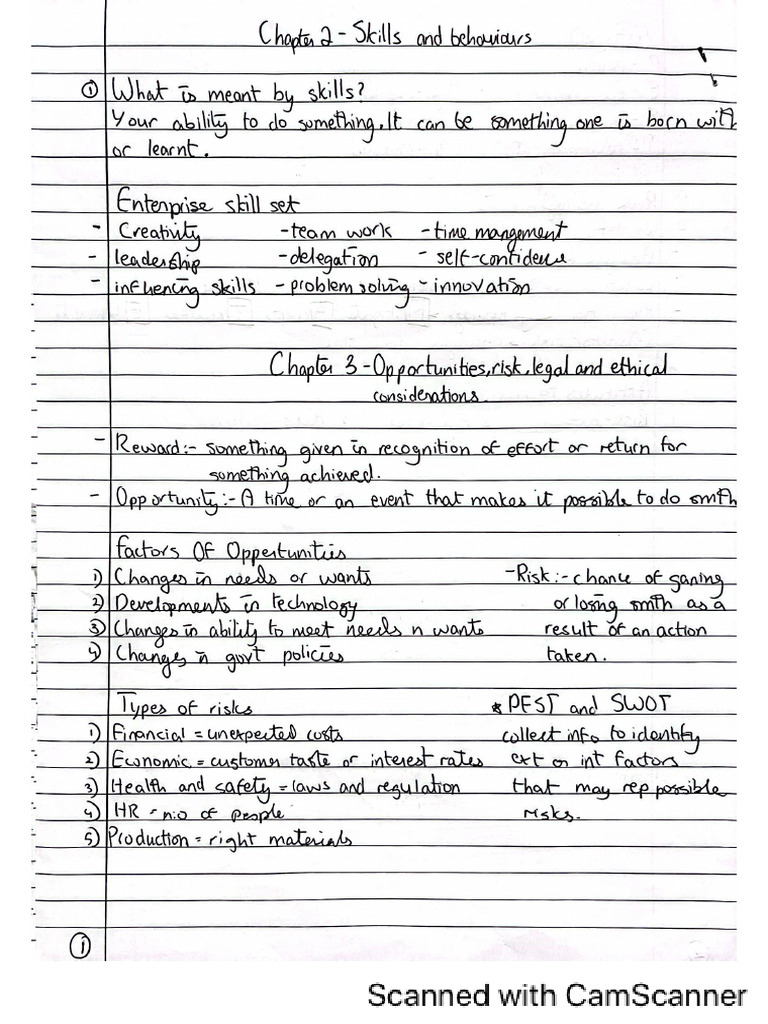 Chapter 2 - Skills and behaviours
① What is meant by skills?
Your ability to do something. It can be something one is born with
or learnt.
Enterprise skill set
- Creativity - team work - time mangement
- leadership - delegation - self-confidence
- influening skills - problem solving - innovation
Chapter 3 - Opportunities, risk, legal and ethical
considerations.
- Reward:- something given in recognition of effort or return for
something achieved.
- Opportunity:- A time or an event that makes it possible to do smth
factors Of Oppertunities
1) Changes in needs or wants
2) Developments in technology
3) Changes in ability to meet needs n wants
4) Changes in govt policies
- Risk:- chance of ganing
or losing smth as a
result of an action
taken.
Types of risks
1) Financial = unexpected costs
2) Economic = customer taste or interest rates
3) Health and safety = laws and regulation
4) HR = n.o of people
5) Production = right materials
* PEST and SWOT
collect info to identify
ext or int factors
that may rep possible
risks.
①
Scanned with CamScanner